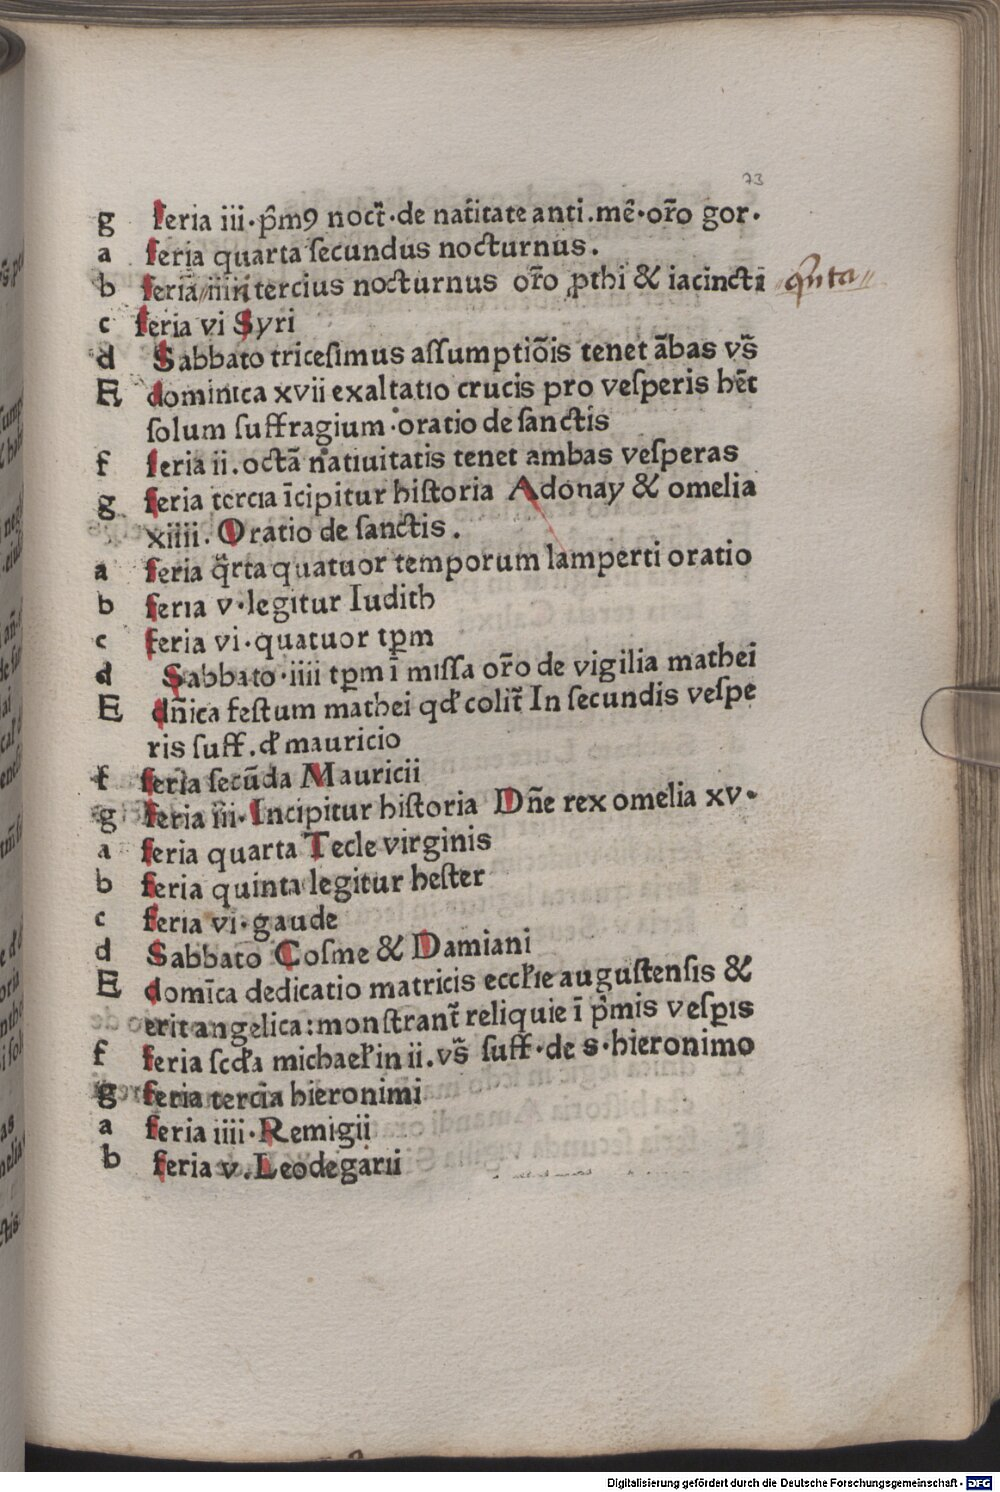 73
g feria iii·p̃m9 noct̃·de natĩtate anti.mẽ·or̃o gor·
a feria quarta ſecundus nocturnus.
b feria iiii tercius nocturnus or̃o ꝓthi & iacincti qñta
c feria vi Syri
d Sabbato triceſimus aſſumptiõis tenet ãbas vs̃
E dominica xvii exaltatio crucis pro veſperis hẽt
ſolum ſuffragium·oratio de ſanctis
f feria ii.octã natiuitatis tenet ambas veſperas
g feria tercia ĩcipitur hiſtoria Adonay & omelia
xiiii. Oratio de ſanctis.
a feria q̃rta quatuor temporum lamperti oratio
b feria v·legitur Iudith
c feria vi·quatuor tꝑm
d Sabbato·iiii tꝑm ĩ miſſa or̃o de vigilia mathei
E dñica feſtum mathei qđ colit̃ In ſecundis veſpe
ris ſuff.đ mauricio
f feria ſecũda Mauricii
g feria iii·Incipitur hiſtoria Dñe rex omelia xv·
a feria quarta Tecle virginis
b feria quinta legitur heſter
c feria vi·gaude
d Sabbato Coſme & Damiani
E domĩca dedicatio matricis eccłie auguſtenſis &
erit angelica:monſtrant̃ reliquie ĩ p̃mis veſꝑis
f feria ſcđa michaeł in ii.vs̃ ſuff·de s·hieronimo
g feria tercia hieronimi
a feria iiii·Remigii
b feria v.Leodegarii
Digitalisierung gefördert durch die Deutsche Forschungsgemeinschaft - DFG